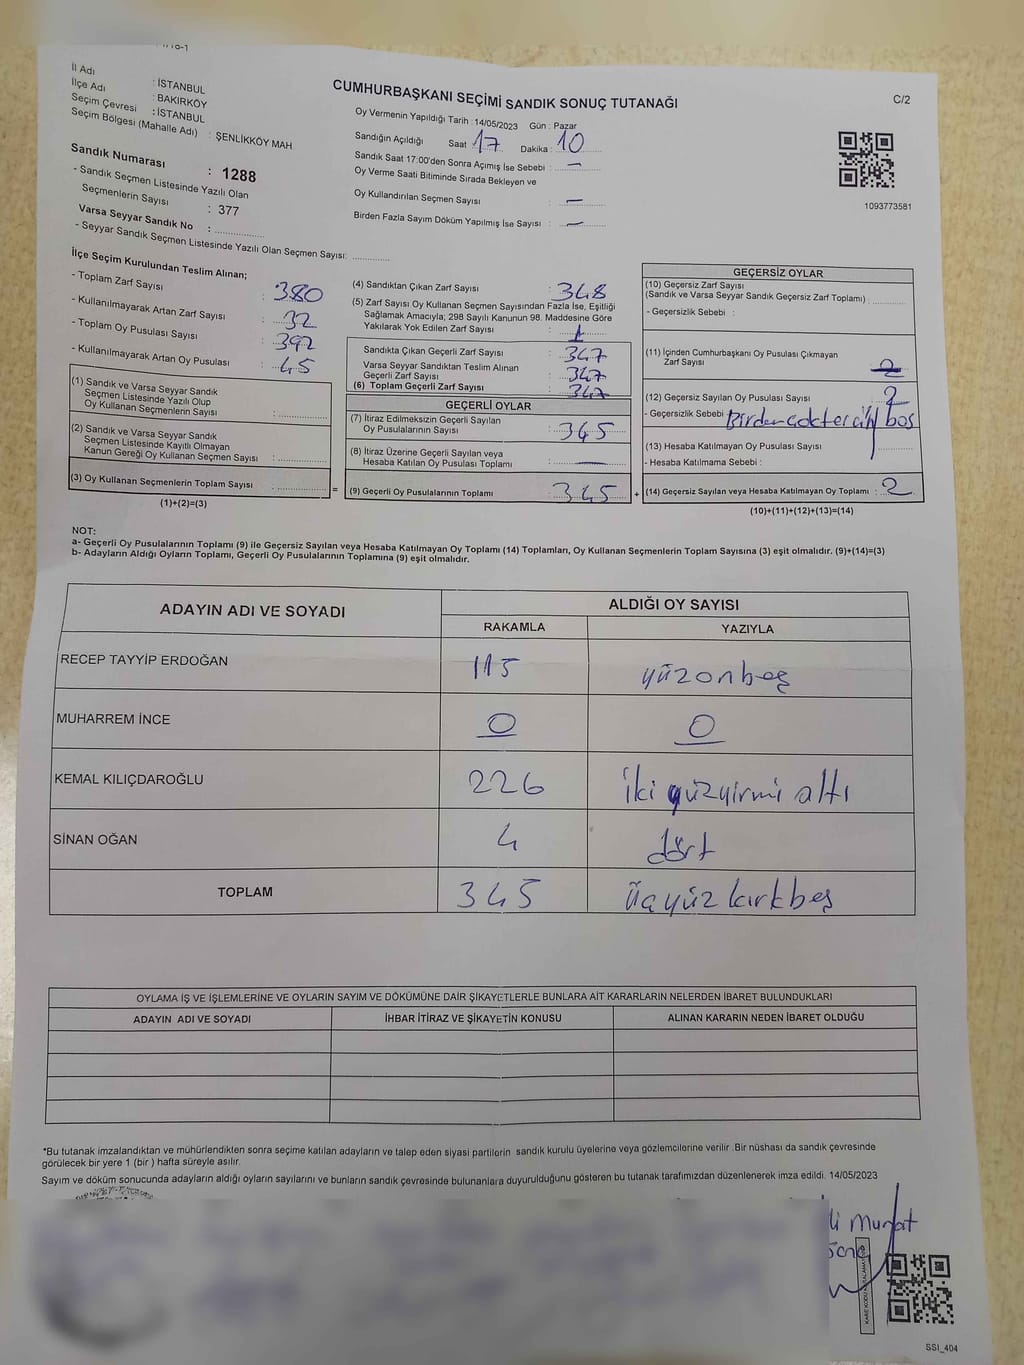 İl Adı : İSTANBUL
İlçe Adı : BAKIRKÖY
Seçim Çevresi : İSTANBUL
Seçim Bölgesi (Mahalle Adı) : ŞENLİKKÖY MAH
Sandık Numarası : 1288
- Sandık Seçmen Listesinde Yazılı Olan
Seçmenlerin Sayısı : 377
Varsa Seyyar Sandık No :
- Seyyar Sandık Seçmen Listesinde Yazılı Olan Seçmen Sayısı:
CUMHURBAŞKANI SEÇİMİ SANDIK SONUÇ TUTANAĞI
Oy Vermenin Yapıldığı Tarih : 14/05/2023 Gün : Pazar
Sandığın Açıldığı Saat 17 Dakika : 10
Sandık Saat 17:00'den Sonra Açımış İse Sebebi : —
Oy Verme Saati Bitiminde Sırada Bekleyen ve
Oy Kullandırılan Seçmen Sayısı : —
Birden Fazla Sayım Döküm Yapılmış İse Sayısı : —
C/2
1093773581
İlçe Seçim Kurulundan Teslim Alınan;
- Toplam Zarf Sayısı : 380
- Kullanılmayarak Artan Zarf Sayısı : 32
- Toplam Oy Pusulası Sayısı : 392
- Kullanılmayarak Artan Oy Pusulası : 45
(1) Sandık ve Varsa Seyyar Sandık
Seçmen Listesinde Yazılı Olup
Oy Kullanan Seçmenlerin Sayısı :
(2) Sandık ve Varsa Seyyar Sandık
Seçmen Listesinde Kayıtlı Olmayan
Kanun Gereği Oy Kullanan Seçmen Sayısı :
(3) Oy Kullanan Seçmenlerin Toplam Sayısı :
(1)+(2)=(3)
(4) Sandıktan Çıkan Zarf Sayısı : 348
(5) Zarf Sayısı Oy Kullanan Seçmen Sayısından Fazla İse, Eşitliği
Sağlamak Amacıyla; 298 Sayılı Kanunun 98. Maddesine Göre
Yakılarak Yok Edilen Zarf Sayısı : 1
Sandıkta Çıkan Geçerli Zarf Sayısı : 347
Varsa Seyyar Sandıktan Teslim Alınan
Geçerli Zarf Sayısı : 347
(6) Toplam Geçerli Zarf Sayısı : 347
GEÇERLİ OYLAR
(7) İtiraz Edilmeksizin Geçerli Sayılan
Oy Pusulalarının Sayısı : 345
(8) İtiraz Üzerine Geçerli Sayılan veya
Hesaba Katılan Oy Pusulası Toplamı : —
= (9) Geçerli Oy Pusulalarının Toplamı : 345 +
GEÇERSİZ OYLAR
(10) Geçersiz Zarf Sayısı
(Sandık ve Varsa Seyyar Sandık Geçersiz Zarf Toplamı) :
- Geçersizlik Sebebi :
(11) İçinden Cumhurbaşkanı Oy Pusulası Çıkmayan
Zarf Sayısı : 2
(12) Geçersiz Sayılan Oy Pusulası Sayısı : 2
- Geçersizlik Sebebi : Birden çok tercih/ boş
(13) Hesaba Katılmayan Oy Pusulası Sayısı :
- Hesaba Katılmama Sebebi :
(14) Geçersiz Sayılan veya Hesaba Katılmayan Oy Toplamı : 2
(10)+(11)+(12)+(13)=(14)
NOT:
a- Geçerli Oy Pusulalarının Toplamı (9) ile Geçersiz Sayılan veya Hesaba Katılmayan Oy Toplamı (14) Toplamları, Oy Kullanan Seçmenlerin Toplam Sayısına (3) eşit olmalıdır. (9)+(14)=(3)
b- Adayların Aldığı Oyların Toplamı, Geçerli Oy Pusulalarının Toplamına (9) eşit olmalıdır.
ADAYIN ADI VE SOYADI
ALDIĞI OY SAYISI
RAKAMLA YAZIYLA
RECEP TAYYİP ERDOĞAN 115 yüzonbeş
MUHARREM İNCE 0 0
KEMAL KILIÇDAROĞLU 226 iki yüzyirmi altı
SİNAN OĞAN 4 dört
TOPLAM 345 üçyüz kırkbeş
OYLAMA İŞ VE İŞLEMLERİNE VE OYLARIN SAYIM VE DÖKÜMÜNE DAİR ŞİKAYETLERLE BUNLARA AİT KARARLARIN NELERDEN İBARET BULUNDUKLARI
ADAYIN ADI VE SOYADI İHBAR İTİRAZ VE ŞİKAYETİN KONUSU ALINAN KARARIN NEDEN İBARET OLDUĞU
*Bu tutanak imzalandıktan ve mühürlendikten sonra seçime katılan adayların ve talep eden siyasi partilerin sandık kurulu üyelerine veya gözlemcilerine verilir. Bir nüshası da sandık çevresinde
görülecek bir yere 1 (bir ) hafta süreyle asılır.
Sayım ve döküm sonucunda adayların aldığı oyların sayılarını ve bunların sandık çevresinde bulunanlara duyurulduğunu gösteren bu tutanak tarafımızdan düzenlenerek imza edildi. 14/05/2023
Murat
SSI_404